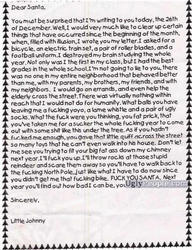 Dear Santa,
You must be surprised that I'm writing to you today, the 26th
of December. Well, I would very much like to clear up certain
things that have occurred since the beginning of the month,
when, filled with illusion, I wrote you my letter. I asked for a
bicycle, an electric train set, a pair of roller blades, and a
football uniform. I destroyed my brain studying the whole
year. Not only was I the first in my class, but I had the best
grades in the whole school. I'm not going to lie to you, there
was no one in my entire neighborhood that behaved better
than me, with my parents, my brothers, my friends, and with
my neighbors. I would go on errands, and even help the
elderly cross the street. There was virtually nothing within
reach that I would not do for humanity. What balls you have
leaving me a fucking yoyo, a lame whistle and a pair of ugly
socks. What the fuck were you thinking, you fat prick, that
you've taken me for a sucker the whole fucking year to come
out with some shit like this under the tree. As if you hadn't
fucked me enough, you gave that little queer across the street
so many toys that he can't even walk into his house. Don't let
me see you trying to fit your big fat ass down my chimney
next year. I'll fuck you up. I'll throw rocks at those stupid
reindeer and scare them away so you'll have to walk back to
the fucking North Pole, just like what I have to do now since
you didn't get me that fucking bike. FUCK YOU SANTA. Next
year you'll find out how bad I can be, you
Sincerely,
Little Johnny